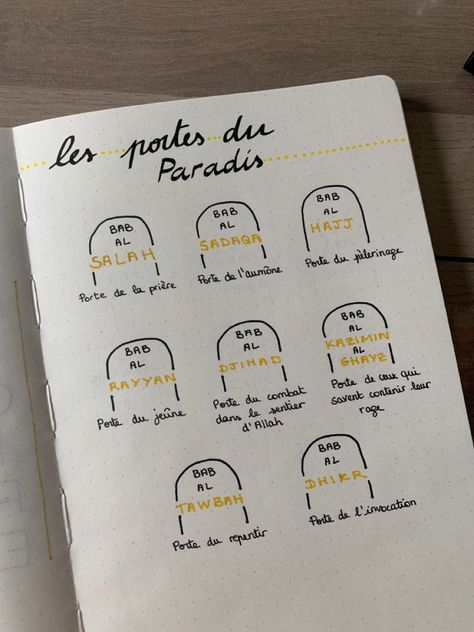 les portes du
Paradis
BAB
AL
SALAH
Porte de la prière
BAB
AL
SADAQA
Porte de l'aumône
BAB
AL
HAJJ
Porte du pèlerinage
BAB
AL
RAYYAN
Porte du jeûne
BAB
AL
DJIHAD
Porte du combat
dans le sentier
d'Allah
BAB
AL
KAZIMIN
AL
GHAYZ
Porte de ceux qui
savent contenir leur
rage
BAB
AL
TAWBAH
Porte du repentir
BAB
AL
DHIKR
Porte de l'invocation